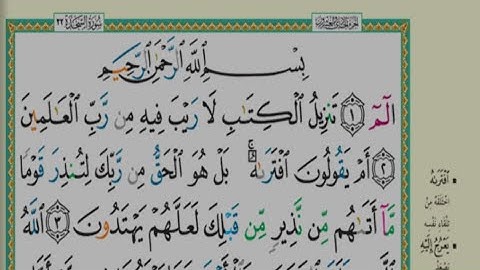 سُورَةُ السَّجْدَةِ ٣٢
بِسْمِ ٱللَّهِ ٱلرَّحْمَٰنِ ٱلرَّحِيمِ
الٓمٓ ۝١ تَنزِيلُ ٱلْكِتَٰبِ لَا رَيْبَ فِيهِ مِن رَّبِّ ٱلْعَٰلَمِينَ
۝٢ أَمْ يَقُولُونَ ٱفْتَرَىٰهُ ۚ بَلْ هُوَ ٱلْحَقُّ مِن رَّبِّكَ لِتُنذِرَ قَوْمًا
مَّآ أَتَىٰهُم مِّن نَّذِيرٍ مِّن قَبْلِكَ لَعَلَّهُمْ يَهْتَدُونَ ۝٣ ٱللَّهُ
• ٱفْتَرَىٰهُ
اخْتَلَقَهُ مِنْ
تِلْقَاءِ نَفْسِهِ
• يَعْرُجُ إِلَيْهِ